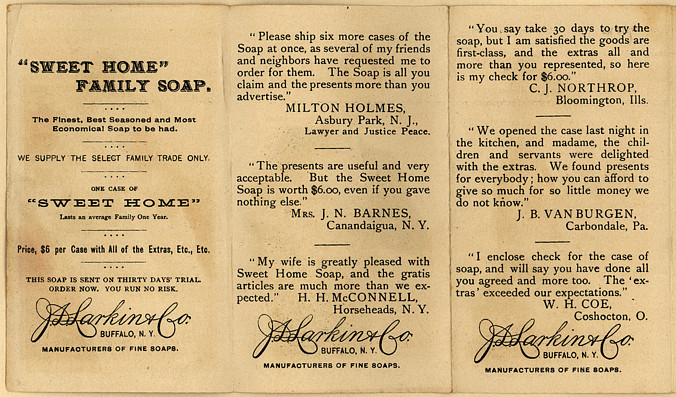 "SWEET HOME"
FAMILY SOAP.
The Finest, Best Seasoned and Most
Economical Soap to be had.
WE SUPPLY THE SELECT FAMILY TRADE ONLY.
ONE CASE OF
"SWEET HOME"
Lasts an average Family One Year.
Price, $6 per Case with All of the Extras, Etc., Etc.
THIS SOAP IS SENT ON THIRTY DAYS' TRIAL.
ORDER NOW. YOU RUN NO RISK.
J.D. Larkin & Co.
BUFFALO, N. Y.
MANUFACTURERS OF FINE SOAPS.
"Please ship six more cases of the
Soap at once, as several of my friends
and neighbors have requested me to
order for them. The Soap is all you
claim and the presents more than you
advertise."
MILTON HOLMES,
Asbury Park, N. J.,
Lawyer and Justice Peace.
"The presents are useful and very
acceptable. But the Sweet Home
Soap is worth $6.00, even if you gave
nothing else."
MRS. J. N. BARNES,
Canandaigua, N. Y.
"My wife is greatly pleased with
Sweet Home Soap, and the gratis
articles are much more than we ex-
pected." H. H. McCONNELL,
Horseheads, N. Y.
J.D. Larkin & Co.
BUFFALO, N. Y.
MANUFACTURERS OF FINE SOAPS.
"You say take 30 days to try the
soap, but I am satisfied the goods are
first-class, and the extras all and
more than you represented, so here
is my check for $6.00."
C. J. NORTHROP,
Bloomington, Ills.
"We opened the case last night in
the kitchen, and madame, the chil-
dren and servants were delighted
with the extras. We found presents
for everybody; how you can afford to
give so much for so little money we
do not know."
J. B. VAN BURGEN,
Carbondale, Pa.
"I enclose check for the case of
soap, and will say you have done all
you agreed and more too. The 'ex-
tras' exceeded our expectations."
W. H. COE,
Coshocton, O.
J.D. Larkin & Co.
BUFFALO, N. Y.
MANUFACTURERS OF FINE SOAPS.